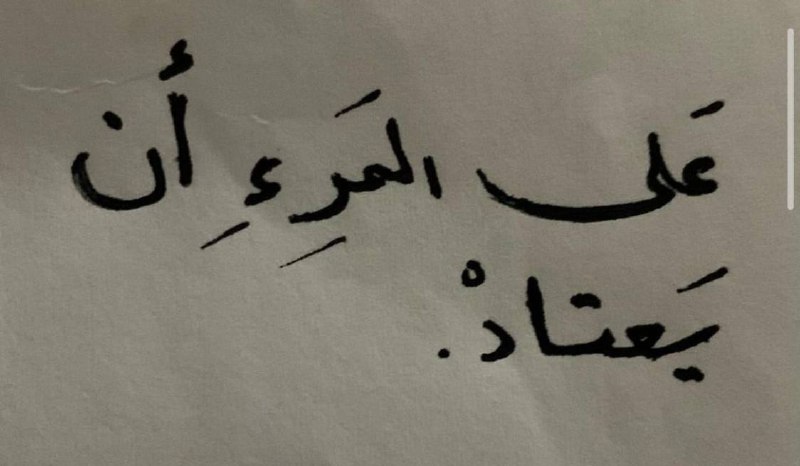 عَلى المَرِءِ أن
يَعتادْ.